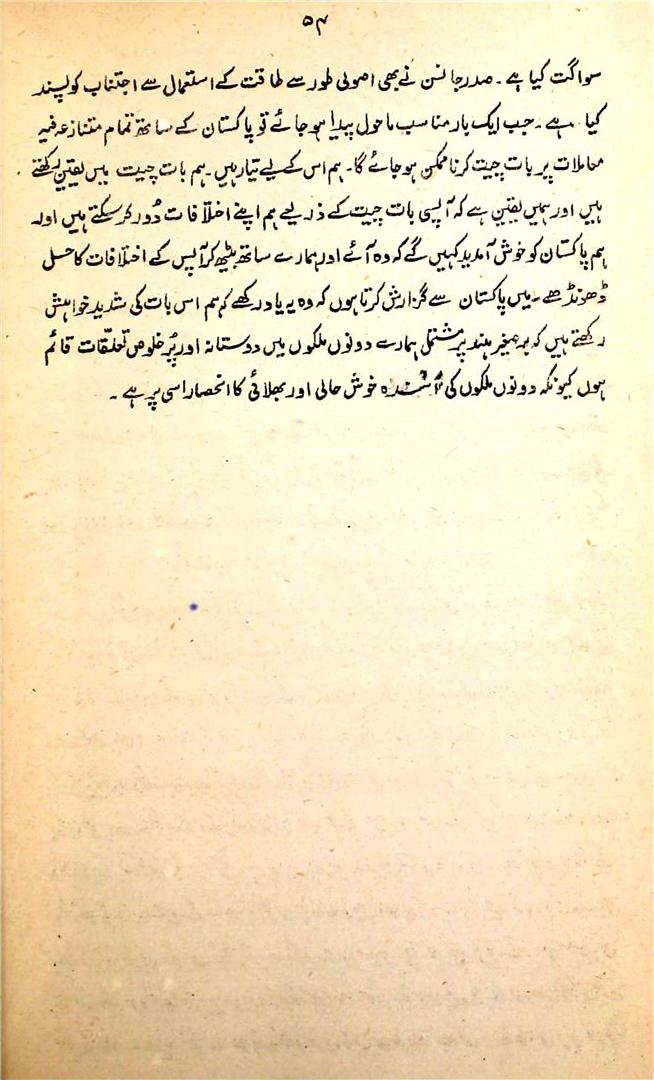 ۵۴
سواگت کیا ہے۔ صدر جانسن نے بھی اصولی طور سے طاقت کے استعمال سے اجتناب کو پسند
کیا ہے۔ جب ایک بار مناسب ماحول پیدا ہو جائے تو پاکستان کے ساتھ تمام متنازعہ فیہ
معاملات پر بات چیت کرنا ممکن ہو جائے گا۔ ہم اس کے لیے تیار ہیں۔ ہم بات چیت میں یقین رکھتے
ہیں اور ہمیں یقین ہے کہ آپسی بات چیت کے ذریعے ہم اپنے اختلافات دُور کر سکتے ہیں اور
ہم پاکستان کو خوش آمدید کہیں گے کہ وہ آئے اور ہمارے ساتھ بیٹھ کر آپس کے اختلافات کا حل
ڈھونڈھے۔ میں پاکستان سے گزارش کرتا ہوں کہ وہ یہ یاد رکھے کہ ہم اس بات کی شدید خواہش
رکھتے ہیں کہ برصغیر ہند پر مشتمل ہمارے دونوں ملکوں میں دوستانہ اور پُر خلوص تعلّقات قائم
ہوں کیونکہ دونوں ملکوں کی آئندہ خوش حالی اور بھلائی کا انحصار اسی پر ہے۔